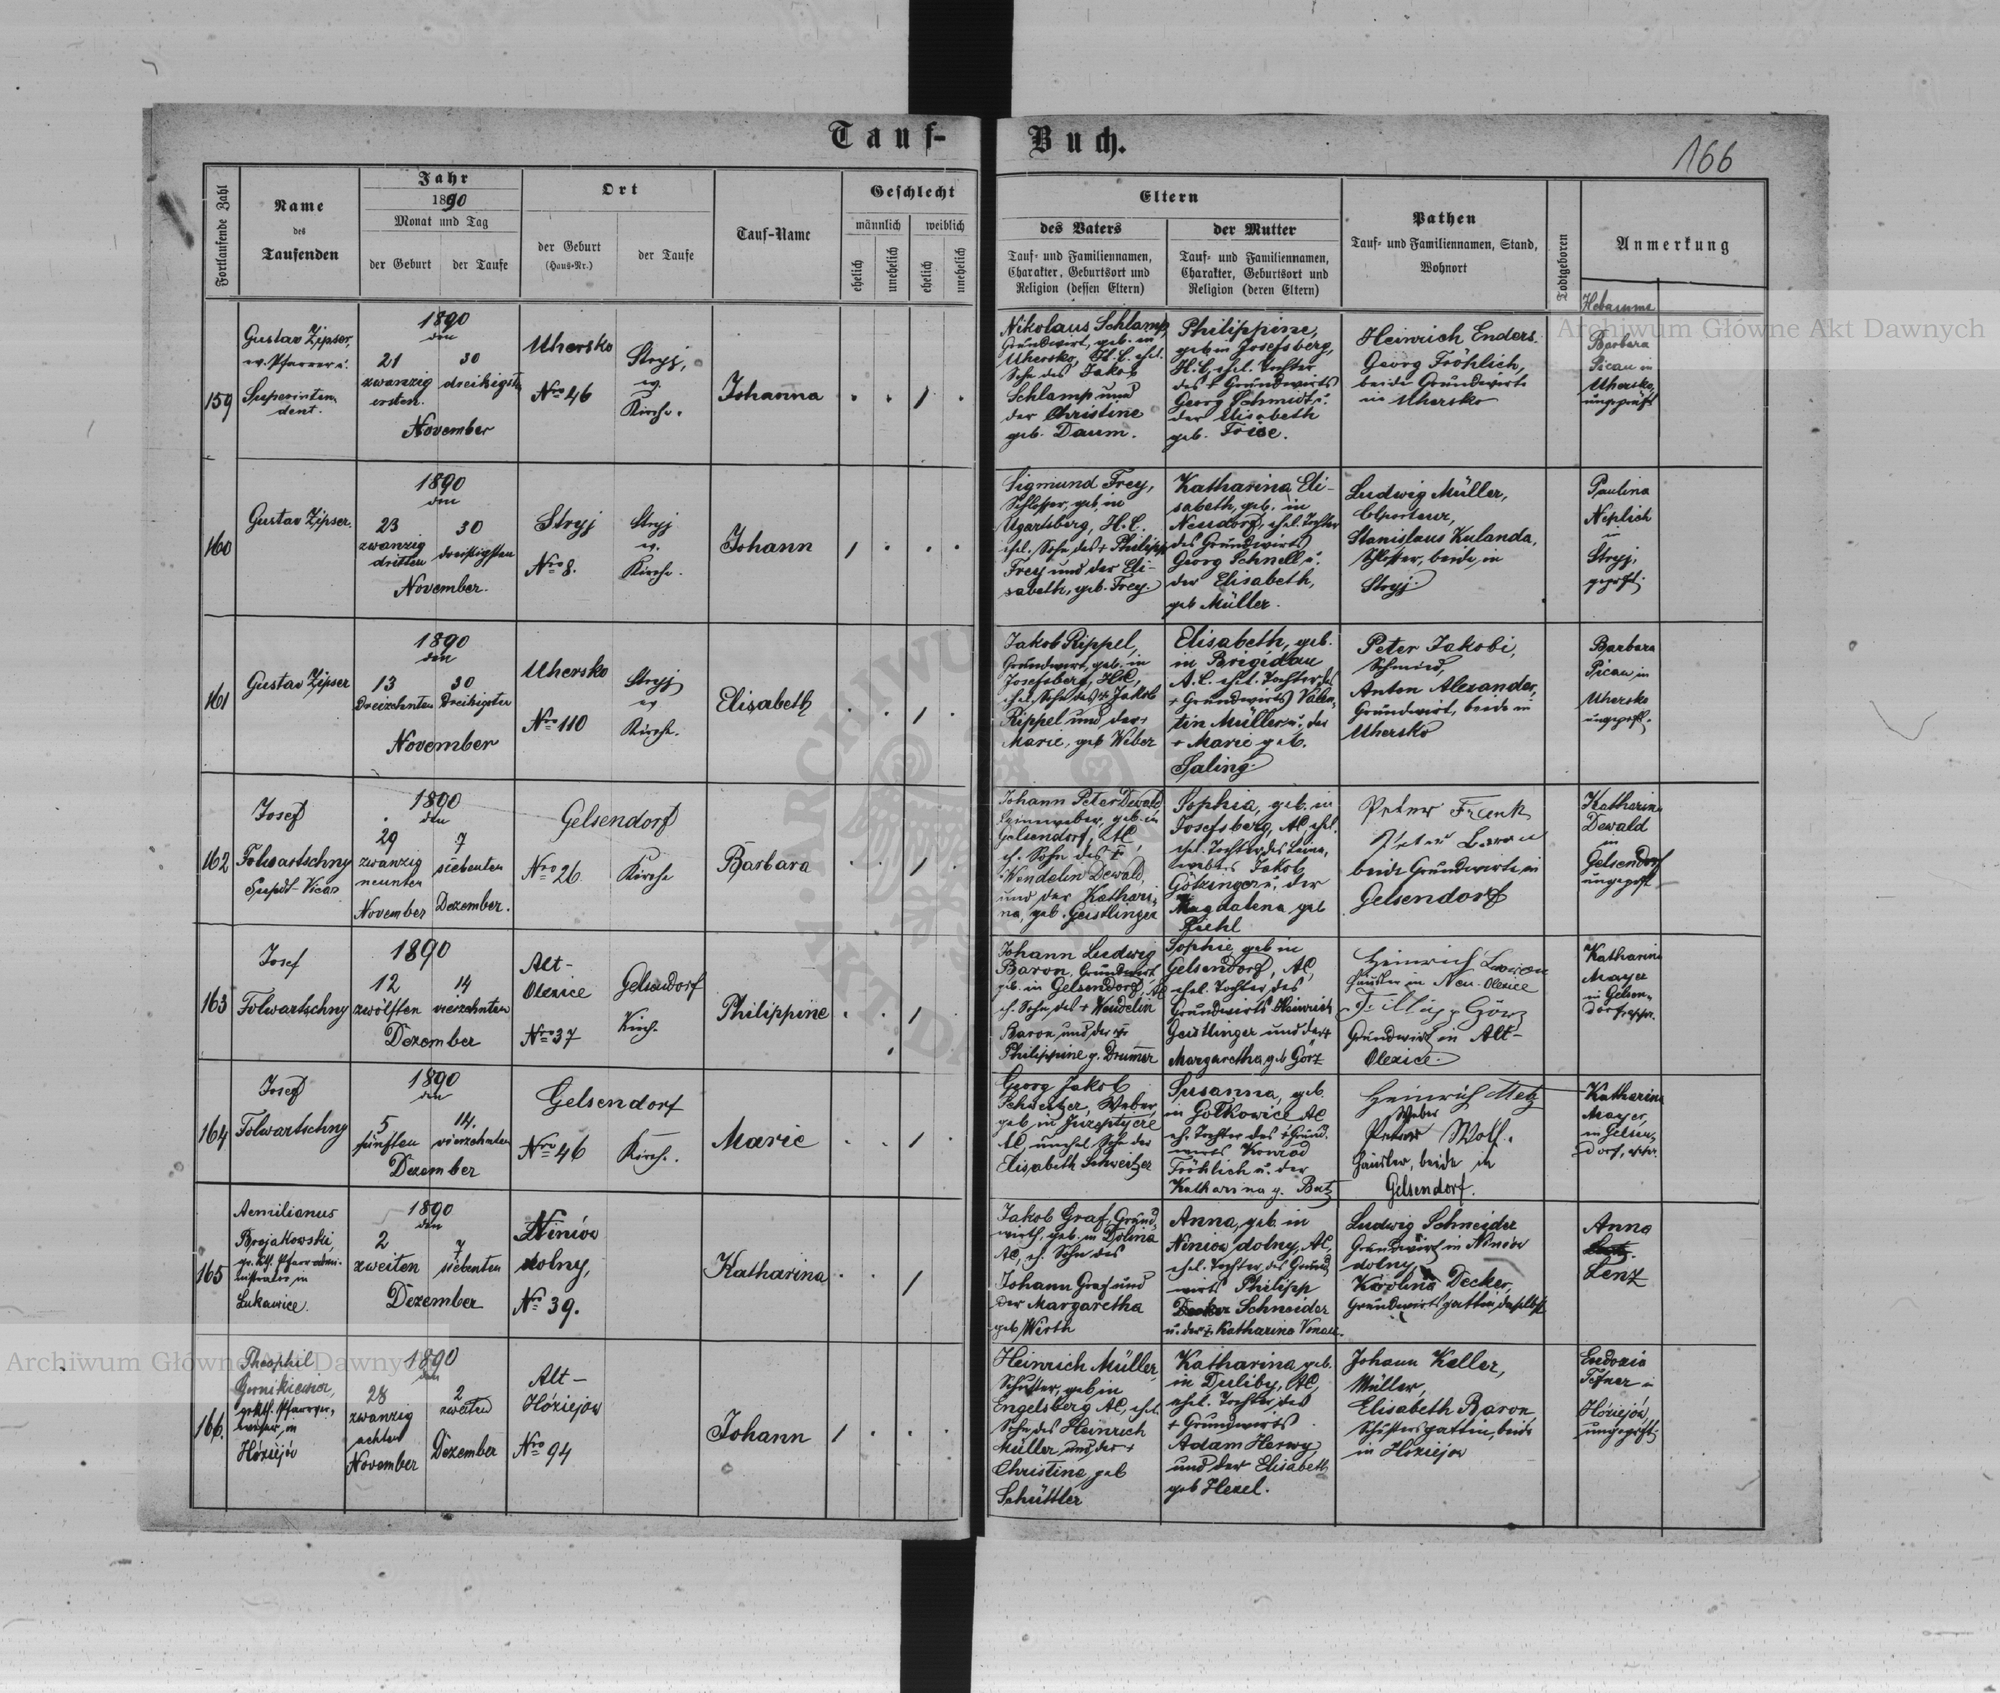 Tauf-Buch.
166
Fortlaufende Zahl
Name
des
Taufenden
Jahr
1890
Monat und Tag
der Geburt
der Taufe
Ort
der Geburt
(Haus-Nr.)
der Taufe
Tauf-Name
Geschlecht
männlich
weiblich
ehelich
unehelich
ehelich
unehelich
Eltern
des Vaters
Tauf- und Familiennamen,
Charakter, Geburtsort und
Religion (dessen Eltern)
der Mutter
Tauf- und Familiennamen,
Charakter, Geburtsort und
Religion (deren Eltern)
Pathen
Tauf- und Familiennamen, Stand,
Wohnort
Todtgeboren
Anmerkung
Hebamme
159
Gustav Zipser,
ev. Pfarrer u.
Superinten
dent.
1890
den
21
zwanzig
ersten
30
dreißigsten
November
Uhersko
Nro 46
Stryj,
ev.
Kirche.
Johanna
1
Nikolaus Schlamp
Grundwirt, geb. in
Uhersko, H.C. ehel.
Sohn des Jakob
Schlamp und
der Christine
geb. Daum.
Philippine,
geb. in Josefsberg,
H.C. ehel. Tochter
des Grundwirts
Georg Schmidt u.
der Elisabeth
geb.
Heinrich Enders.
Georg Fröhlich,
beide Grundwirte
in Uhersko
Barbara
Picau in
Uhersko,
ungeprüft
160
Gustav Zipser.
1890
den
23
zwanzig
dritten
30
dreißigsten
November.
Stryj
Nro 8.
Stryj
ev.
Kirche.
Johann
1
Sigmund Frey,
Schlosser, geb. in
Ugartsberg, H.C.
ehel. Sohn des + Philipp
Frey und der Eli-
sabeth, geb. Frey.
Katharina Eli-
sabeth, geb. in
Neudorf, ehel. Tochter
des Grundwirts
Georg Schnell u.
der Elisabeth,
geb Müller.
Ludwig Müller,
Colporteur,
Stanislaus Kulanda,
Schlosser, beide in
Stryj.
Paulina
Neplich
in
Stryj,
geprft.
161
Gustav Zipser
1890
den
13
Dreizehnten
30
Dreißigster
November
Uhersko
Nro 110
Stryj
ev
Kirche.
Elisabeth
1
Jakob Rippel,
Grundwirt, geb. in
Josefsberg, HC,
ehel. Sohn des + Jakob
Rippel und der +
Marie, geb Weber
Elisabeth, geb.
in Brigidau
A.C. ehel. Tochter des
+ Grundwirts Valen-
tin Müller u. der
+ Marie geb.
Saling.
Peter Jakobi,
Schmied,
Anton Alexander,
Grundwirt, beide in
Uhersko
Barbara
Picau in
Uhersko
ungeprft.
162
Josef
Folwartschny
Supdt. Vicar
1890
den
29
zwanzig
neunten
November
7
siebenten
Dezember.
Gelsendorf
Nro 26
Kirche
Barbara
1
Johann Peter Dewald,
Leinweber, geb. in
Gelsendorf, AC,
eh. Sohn des +
Wendelin Dewald,
und der Kathari-
na, geb. Geistlinger
Sophia, geb. in
Josefsberg, AC, ehel.
ehel. Tochter des Lein-
webers Jakob
Götzinger u. der
Magdalena geb
Diehl
Peter Frank
beide Grundwirte in
Gelsendorf
Katharina
Dewald
in
Gelsendorf
ungeprft
163
Josef
Folwartschny
1890
12
zwölften
14
vierzehnten
Dezember
Alt-
Olexice
Nro 37
Gelsendorf
Kirche
Philippine
1
Johann Ludwig
Baron, Grundwirt
geb. in Gelsendorf, AC
eh. Sohn des + Wendelin
Baron und der +
Philippine g. Drummer
Sophie geb in
Gelsendorf, AC,
ehel. Tochter des
Grundwirts Heinrich
Geistlinger und der +
Margaretha geb Görz
Heinrich Baron
Häusler in Neu-Olexice
Fillipp Görz
Grundwirt in Alt-
Olexice.
Katharina
Mayer
in Gelsen-
dorf,
164
Josef
Folwartschny
1890
den
5
fünften
14.
vierzehnten
Dezember
Gelsendorf
Nro 46
Kirche.
Marie
1
Georg Jakob
Schweitzer, Weber,
geb in Juzeptycze
AC, unehel. Sohn der
Elisabeth Schweitzer
Susanna, geb.
in Gołkowice AC
eh. Tochter des + Grund-
wirts Konrad
Fröhlich u. der
Katharina g. Butz
Heinrich Metz
Weber
Peter Wolf.
Häusler, beide in
Gelsendorf.
Katharina
Mayer,
in Gelsen-
dorf,
165
Aemilianus
Brojakowski
gr. kth. Pfarradmi-
nistrator in
Lukawice.
1890
den
2
zweiten
7
siebenten
Dezember
Niniów
dolny,
Nro 39.
Katharina
1
Jakob Graf, Grund-
wirth, geb. in Dolina
AC, eh. Sohn des
Johann Graf und
der Margaretha
geb Wirth
Anna, geb. in
Niniow dolny, AC,
ehel. Tochter des Grund
wirts Philipp
Schneider
u. der + Katharina
Ludwig Schneider
Grundwirt in Niniów
dolny,
Karolina Decker,
Grundwirtsgattin daselbst
Anna
Lenz
166.
Theophil
gr. kth. Pfarrver-
weser, in
Hóziejów
1890
den
28
zwanzig
achten
November
2
zweiten
Dezember
Alt-
Hóziejów
Nro 94
Johann
1
Heinrich Müller,
Schuster, geb in
Engelsberg AC, ehel.
Sohn des Heinrich
Müller und der +
Christine geb
Schüttler
Katharina geb.
in Duliby, AC,
ehel. Tochter des
+ Grundwirts
Adam Herwy
und der Elisabeth
geb Hexel.
Johann Keller,
Müller,
Elisabeth Baron
Schustersgattin, beide
in Hóziejow
Eudoxia
in
Hóziejów,
ungeprft.
Archiwum Główne Akt Dawnych
Archiwum Główne Akt Dawnych